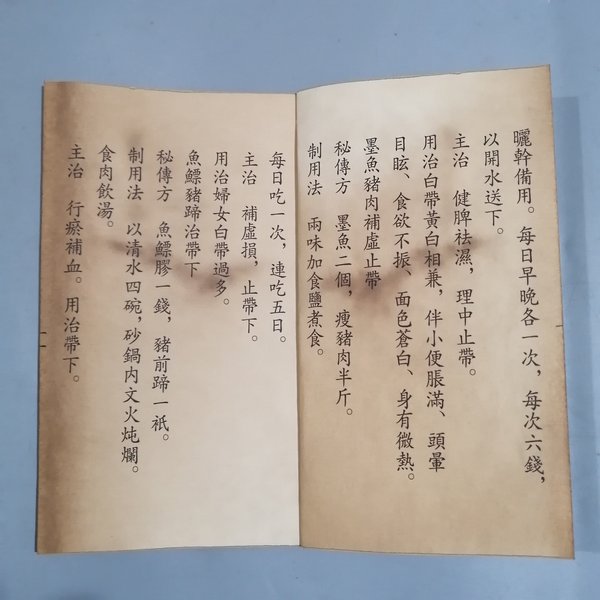 曬幹備用。每日早晚各一次，每次六錢，
以開水送下。
主治　健脾祛濕，理中止帶。
用治白帶黃白相兼，伴小便脹滿、頭暈
目眩、食欲不振、面色蒼白、身有微熱。
墨魚豬肉補虛止帶
秘傳方　墨魚二個，瘦豬肉半斤。
制用法　兩味加食鹽煮食。
每日吃一次，連吃五日。
主治　補虛損，止帶下。
用治婦女白帶過多。
魚鰾豬蹄治帶下
秘傳方　魚鰾膠一錢，豬前蹄一衹。
制用法　以清水四碗，砂鍋内文火炖爛。
食肉飲湯。
主治　行瘀補血。用治帶下。